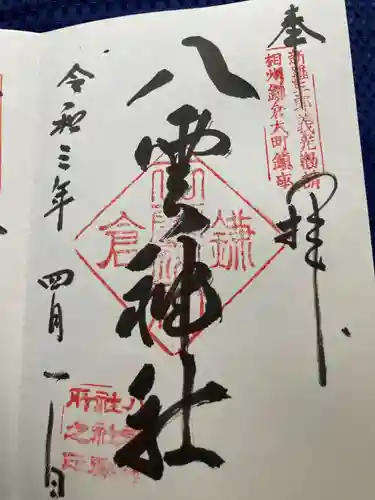 奉拝
新羅三郎義光勧請
相州鎌倉大町鎮座
八雲神社
鎌倉
令和三年
四月一日